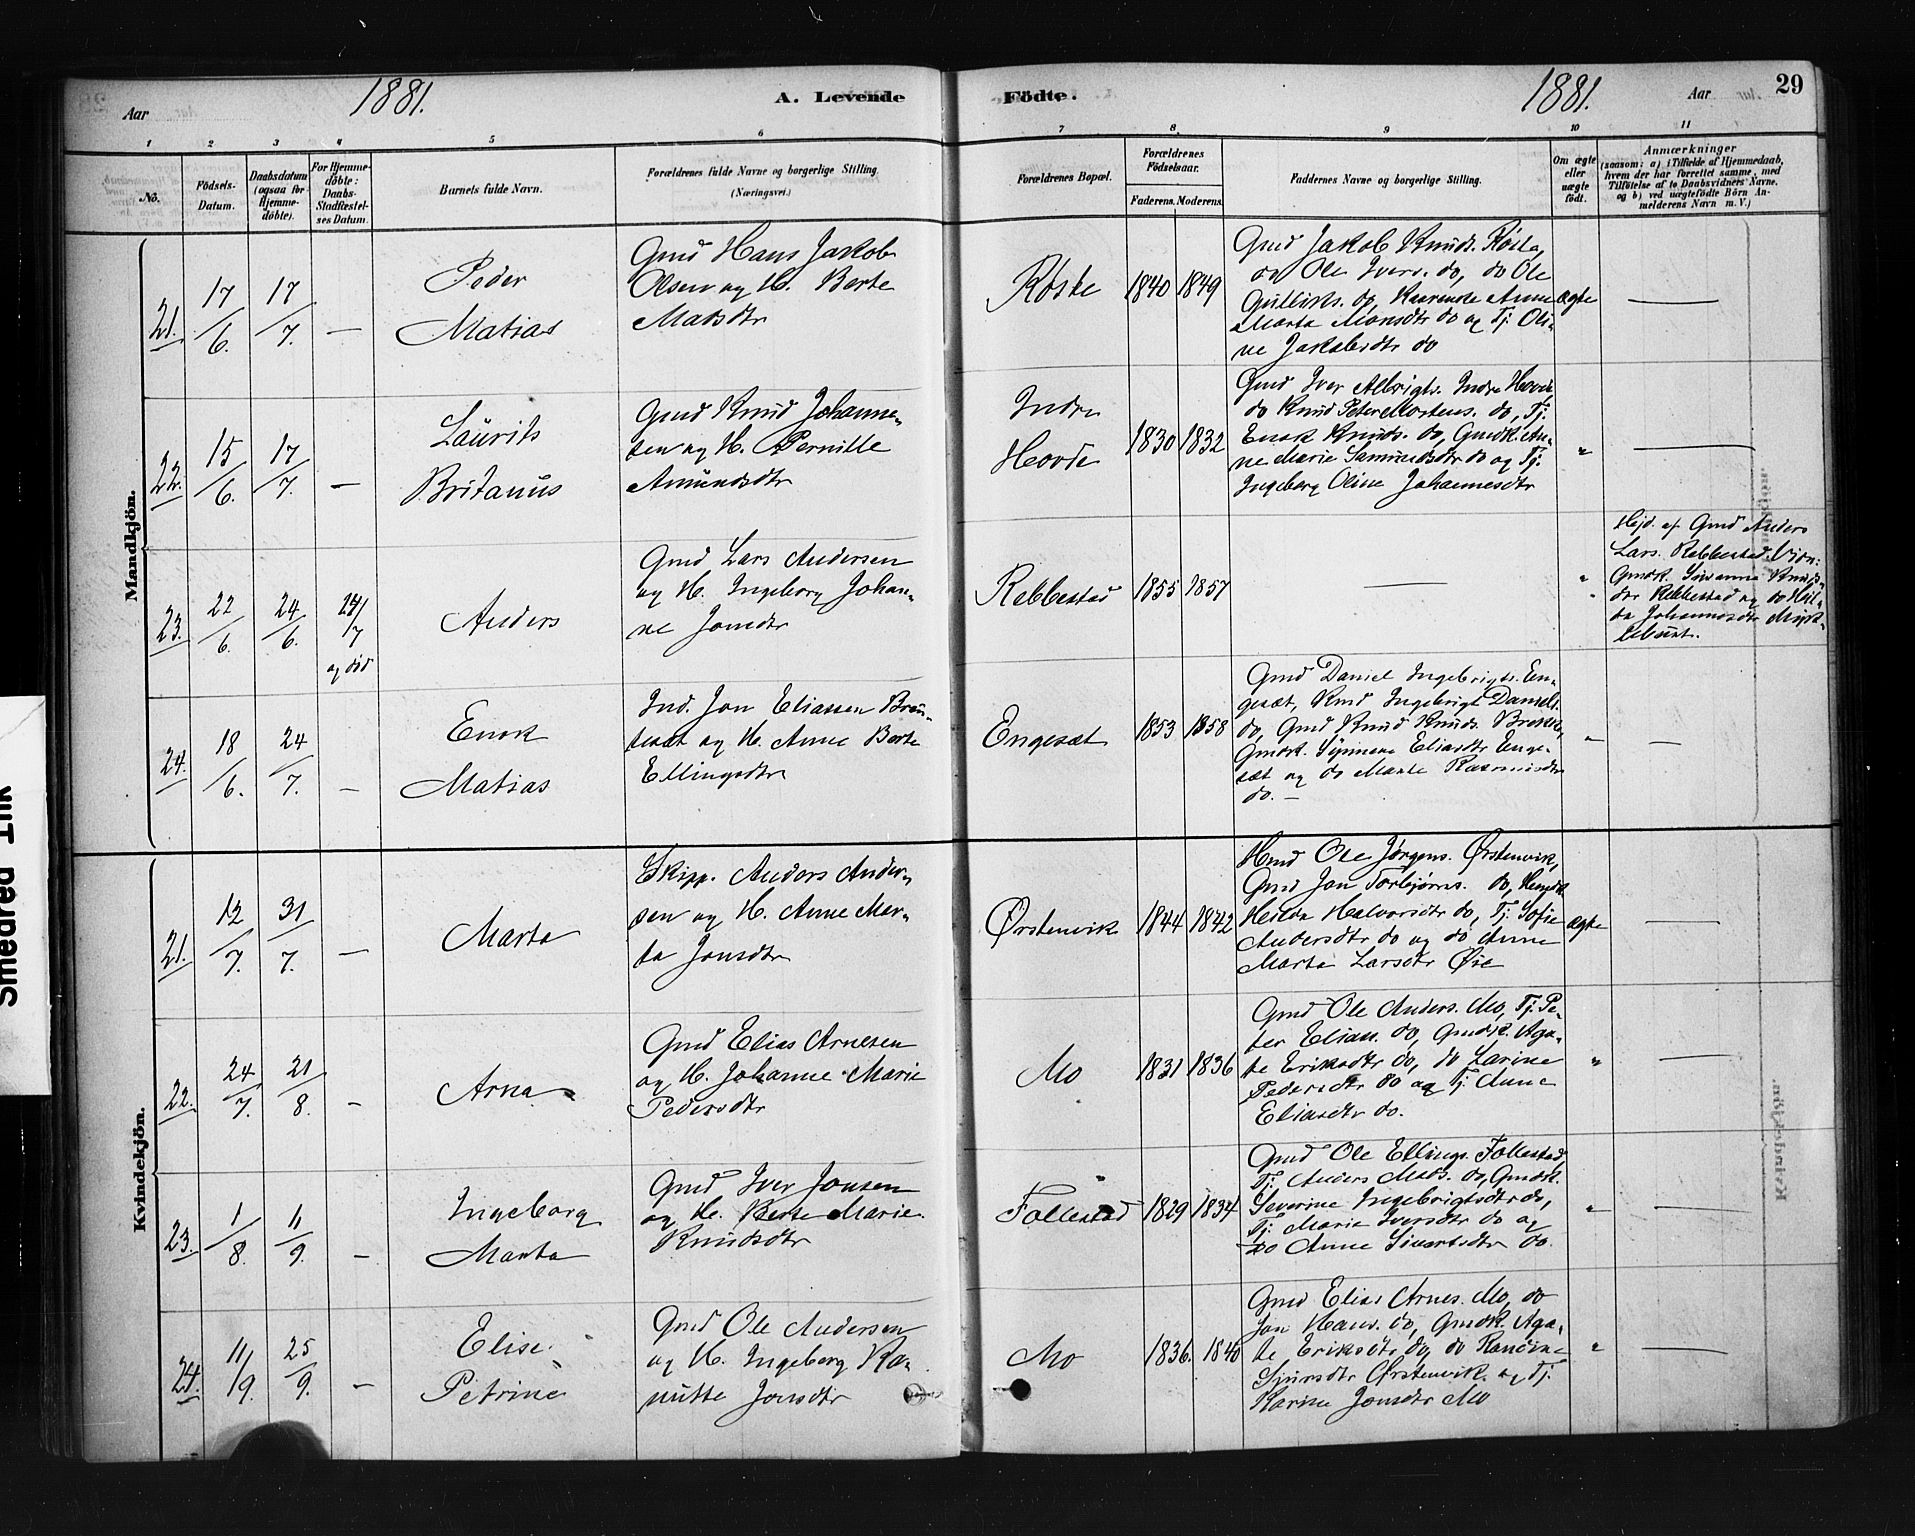 1881.
A. Levende
Födte.
1881.
29
Aar
Aar
1 2 3 4 5 6 7 8. 9 10 11
No.
Födsels-Datum.
Daabsdatum (ogsaa for Hjemme-döbte).
For Hjemme-döbte: Daabs-Stadfæstel-ses Datum.
Barnets fulde Navn.
Forældrenes fulde Navne og borgerlige Stilling.
(Næringsvei.)
Forældrenes Bopæl.
Forældrenes Födselsaar.
Faderens. Moderens.
Faddernes Navne og borgerlige Stilling.
Om ægte eller uægte födt.
Anmærkninger
(saasom: a) i Tilfælde af Hjemmedaab,
hvem der har forrettet samme, med
Tilföielse af to Daabsvidners Navne.
og b) ved uægtefödte Börn An-
melderens Navn m. V.)
Mandkjön.
21. 17/6. 17/7. —
Peder
Matias
Gmd Hans Jakob
Olsen og H. Berte
Matsdtr
Røste 1840 1849
Gmd Jakob Knuds. Røste,
og Ole Ivers. do, do Ole
Gulliks. do, Anne
Marta Monsdtr do og Tj. Oli-
ne Jakobsdtr do
ægte —
22. 15/6. 17/7. —
Laurits
Britanus
Gmd Knud Johanne-
sen og H. Pernille
Amundsdtr
Indre
Hovde
1830 1832
Gmd Iver Albrigts. Indre Hovde
do Knud Peter Mortens. do, Tj.
Enok Knuds. do, Gmdk. An-
ne Marie Samundsdtr do og Tj.
Ingeborg Oline Johannesdtr
" —
23. 22/6. 24/6. 24/7
og død
Anders
Gmd Lars Andersen
og H. Ingeborg Johan-
ne Jonsdtr
Rebbestad 1855 1857
— "
Hjd. af Gmd Anders
Lars. Rebbestad.
Gmdk. Susanne Knuds-
dtr Rebbestad og do
Johannesdtr Mykle-
bust.
24. 18/6. 24/7. —
Enok
Matias
Ind. Jon Eliassen Brau-
tesæt og H. Anne Berte
Ellingsdtr
Engesæt 1853 1858
Gmd Daniel Ingebrigts. En-
gesæt, Knud Ingebrigt Daniels.
do, Gmd Knud Knuds.
Gmdk. Synneve Eliasdtr Enge-
sæt og do Marte Rasmusdtr
do. —
" —
Kvindekjön.
21. 12/7. 31/7. —
Marta
Skipp. Anders Ander-
sen og H. Anne Mar-
ta Jonsdtr
Ørstenvik 1844 1842
Hmd Ole Jørgens. Ørstenvik,
Gmd Jon Torbjørns. do,
Halvorsdtr do, Tj. Sofie
Andersdtr do og do Anne
Marta Larsdtr Øie
ægte —
22. 24/7. 21/8. —
Arna
Gmd Elias Arnesen
og H. Johanne Marie
Pedersdtr
Mo 1831 1836
Gmd Ole Anders. Mo, Tj. Pe-
ter Elias. do, Gmdk. Aga-
te Eriksdtr do, do Larine
Pedersdtr do og Tj. Anne
Eliasdtr do.
" —
23. 1/8. 11/9. —
Ingeborg
Marta
Gmd Iver Jonsen
og H. Berte Marie
Knudsdtr
Follestad 1829 1834
Gmd Ole Ellings. Follestad
Tj. Anders Mads. do, Gmdk.
Severine Ingebrigtsdtr do,
Tj. Marie Iversdtr do og
do Anne Sivertsdtr do.
" —
24. 11/9. 25/9. —
Elise
Petrine
Gmd Ole Andersen
og H. Ingeborg Ra-
nutte Jonsdtr
Mo 1836. 1840
Gmd Elias Arnes. Mo, do
Jon Hans. do, Gmdk. Aga-
te Eriksdtr do, do Randine
Sjursdtr Ørstenvik og Tj.
Karine Jonsdtr Mo
" —
Smedrød Tlk